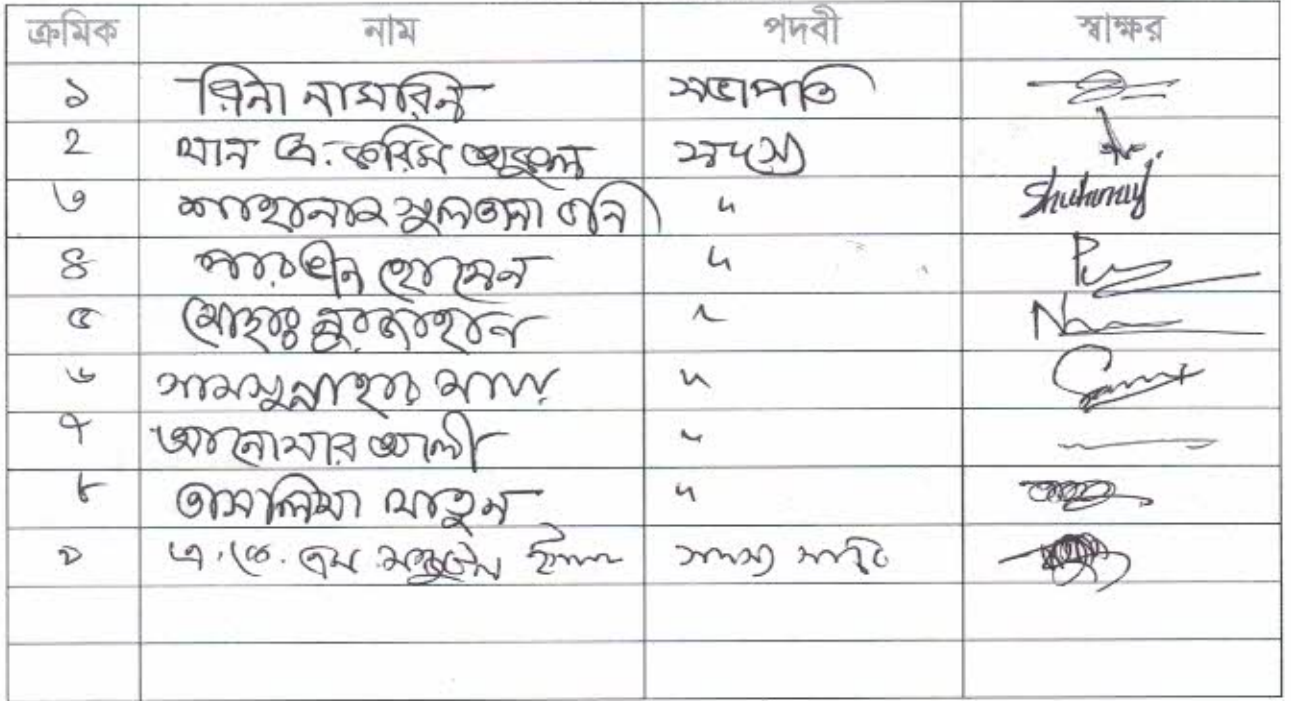 ক্রমিক নাম পদবী স্বাক্ষর
১ রিনা নাসরিন সভাপতি
২ খান এ. করিম সদস্য
৩ শাহানাজ সুলতানা বানি " Shahanaj
৪ পারভীন হোসেন "
৫ মোছাঃ নুরজাহান "
৬ সামসুন্নাহার "
৭ আনোয়ার আলী "
৮ তাসলিমা খাতুন "
৯ এ. কে. এম. সদস্য সচিব